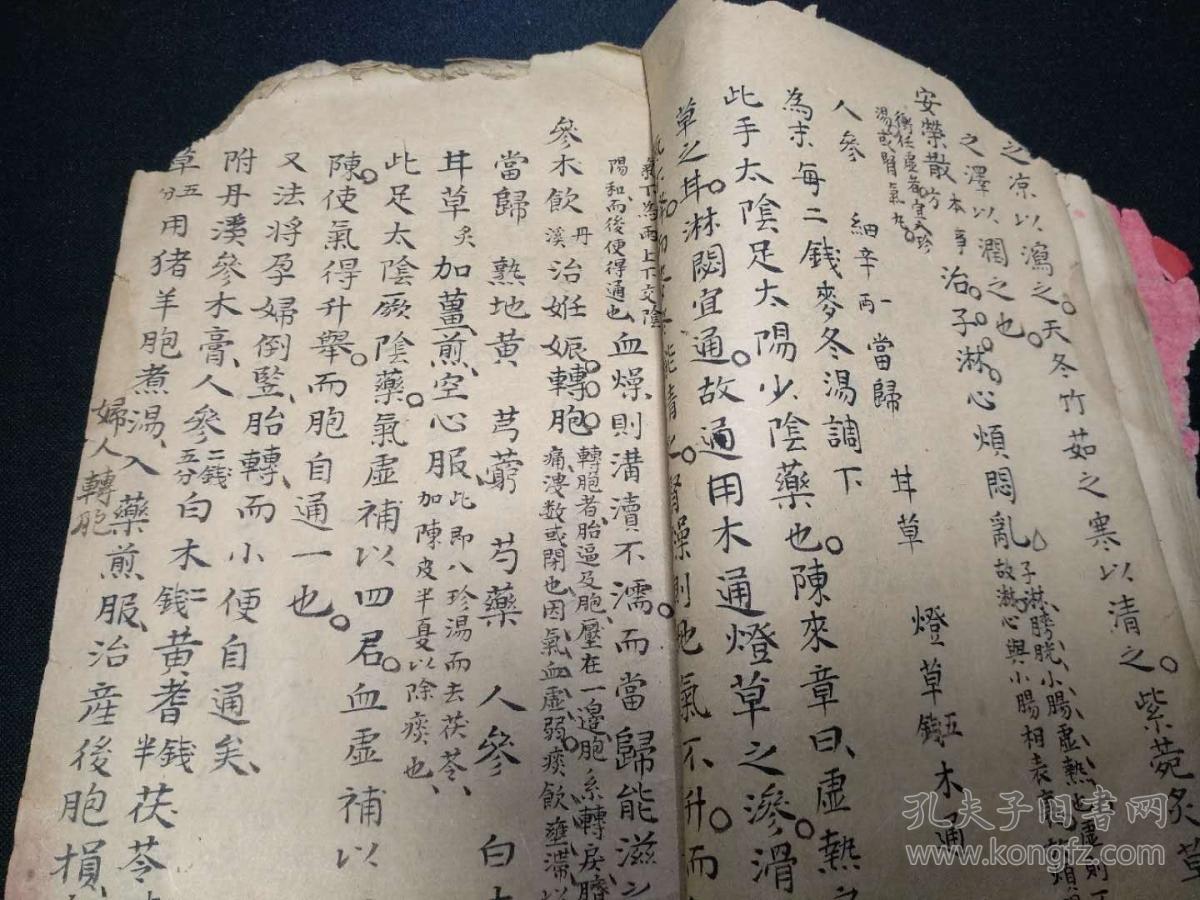 之凉以瀉之。天冬竹茹之寒以清之。紫菀炙草
之澤以潤之也。
子淋、膀胱、小腸、虛熱也、虛則不
故煩心與小腸相表
安榮散 本事方 治子淋。心煩悶亂
衝任虛者、宜八珍
湯或腎氣丸。
人參 細辛一兩 當歸 甘草 燈草五錢 木通
為末每二錢麥冬湯調下
此手太陰足太陽少陰藥也。陳來章曰、虛熱之
草之甘。淋悶宜通。故通用木通燈草之滲滑
能清之。腎燥則地氣不升。而
氣下為雨上下交陰
陽和而後便得通也、血燥則溝瀆不濡。而當歸能滋之
參木飲 丹溪 治妊娠。轉胞。
轉胞者、胎逼及胞、壓在一邊、胞系轉戾、臍
痛、溲数或閉也、因氣血虛弱。痰飲壅滯
當歸 熟地黃 芎藭 芍藥 人參 白
甘草炙 加薑煎、空心服
此即八珍湯而去茯苓、
加陳皮半夏以除痰也、
此足太陰厥陰藥。氣虛補以四君。血虛補以
陳。使氣得升舉。而胞自通也。
又法將孕婦倒竪、胎轉、而小便自通矣、
附丹溪參木膏、人參二錢五分 白木二錢 黃耆錢半 茯苓
草五分 用猪羊胞煮湯、入藥煎服、治産後胞損、
婦人轉胞
孔夫子旧书网
www.kongfz.com